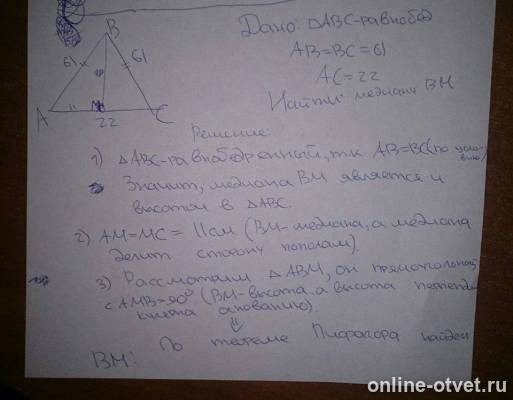 Дано: △ABC-равнобед
AB=BC=61
AC=22
Найти: медиану BM
B
61
61
A
M
C
22
Решение:
1) △ABC-равнобедренный, тк AB=BC(по условию)
Значит, медиана BM является и
высотой в △ABC.
2) AM=MC=11см (BM-медиана, а медиана
делит сторону пополам).
3) Рассмотрим △ABM, он прямоугольный
<AMB=90° (BM-высота, а высота перпенди
кулярна основанию).
⇓
По теореме Пифагора найдем
BM:
online-otvet.ru